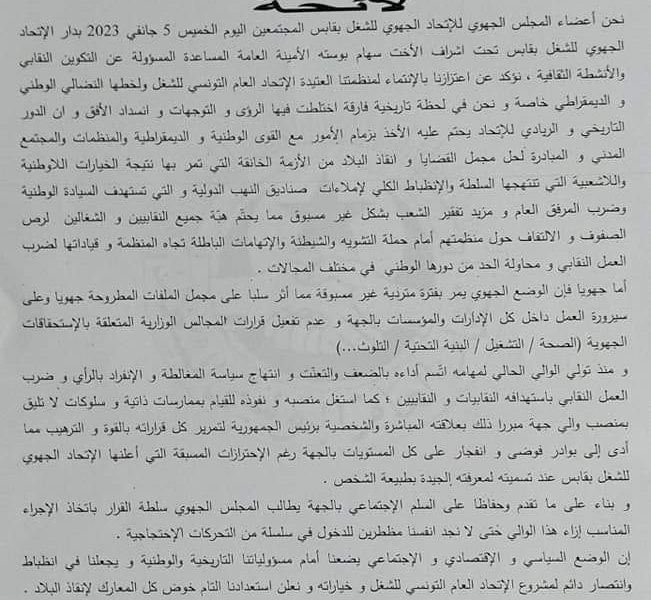 لائحة
نحن أعضاء المجلس الجهوي للإتحاد الجهوي للشغل بقابس المجتمعين اليوم الخميس 5 جانفي 2023 بدار الإتحاد
الجهوي للشغل بقابس تحت اشراف الأخت سهام بوسته الأمينة العامة المساعدة المسؤولة عن التكوين النقابي
والأنشطة الثقافية ، نؤكد عن اعتزازنا بالإنتماء لمنظمتنا العتيدة الإتحاد العام التونسي للشغل ولخطها النضالي الوطني
و الديمقراطي خاصة و نحن في لحظة تاريخية فارقة اختلطت فيها الرؤى و التوجهات و انسداد الأفق و ان الدور
التاريخي و الريادي للإتحاد يحتم عليه الأخذ بزمام الأمور مع القوى الوطنية و الديمقراطية والمنظمات والمجتمع
المدني و المبادرة لحل مجمل القضايا و انقاذ البلاد من الأزمة الخانقة التي تمر بها نتيجة الخيارات اللاوطنية
واللاشعبية التي تنتهجها السلطة والإنظباط الكلي لإملاءات صناديق النهب الدولية و التي تستهدف السيادة الوطنية
وضرب المرفق العام و مزيد تفقير الشعب بشكل غير مسبوق مما يحتّم هبّة جميع النقابيين و الشغالين لرص
الصفوف و الالتفاف حول منظمتهم أمام حملة التشويه والشيطنة والإتهامات الباطلة تجاه المنظمة و قياداتها لضرب
العمل النقابي و محاولة الحد من دورها الوطني في مختلف المجالات .
أما جهويا فإن الوضع الجهوي يمر بفترة متردية غير مسبوقة مما أثر سلبا على مجمل الملفات المطروحة جهويا وعلى
سيرورة العمل داخل كل الإدارات والمؤسسات بالجهة و عدم تفعيل قرارات المجالس الوزارية المتعلقة بالإستحقاقات
الجهوية (الصحة / التشغيل / البنية التحتية / التلوث...)
و منذ تولي الوالي الحالي لمهامه اتّسم أداءه بالضعف والتعنّت و انتهاج سياسة المغالطة و الإنفراد بالرأي و ضرب
العمل النقابي باستهدافه النقابيات و النقابيين ؛ كما استغل منصبه و نفوذه للقيام بممارسات ذاتية و سلوكات لا تليق
بمنصب والي جهة مبررا ذلك بعلاقته المباشرة والشخصية برئيس الجمهورية لتمرير كل قراراته بالقوة و الترهيب مما
أدى إلى بوادر فوضى و انفجار على كل المستويات بالجهة رغم الإحترازات المسبقة التي أعلنها الإتحاد الجهوي
للشغل بقابس عند تسميته لمعرفته الجيدة بطبيعة الشخص .
و بناء على ما تقدم وحفاظا على السلم الإجتماعي بالجهة يطالب المجلس الجهوي سلطة القرار باتخاذ الإجراء
المناسب إزاء هذا الوالي حتى لا نجد انفسنا مظطرين للدخول في سلسلة من التحركات الإحتجاجية .
إن الوضع السياسي و الإقتصادي و الإجتماعي يضعنا أمام مسؤولياتنا التاريخية والوطنية و يجعلنا في انظباط
وانتصار دائم لمشروع الإتحاد العام التونسي للشغل و خياراته و نعلن استعدادنا التام خوض كل المعارك لإنقاذ البلاد .